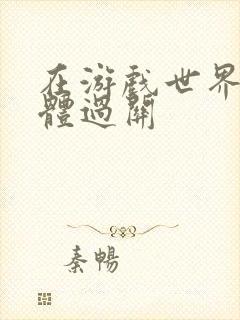 在游戏世界
體過關
秦暢